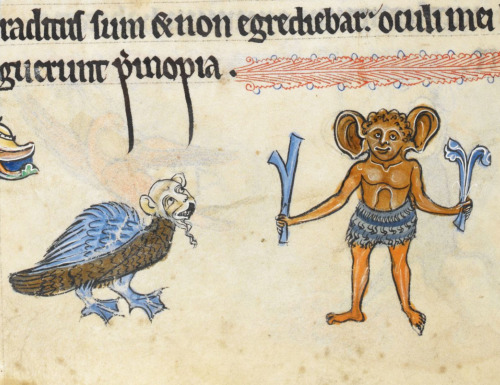 raditus sum & non egrediebar: oculi mei
guerunt p̄inopia .